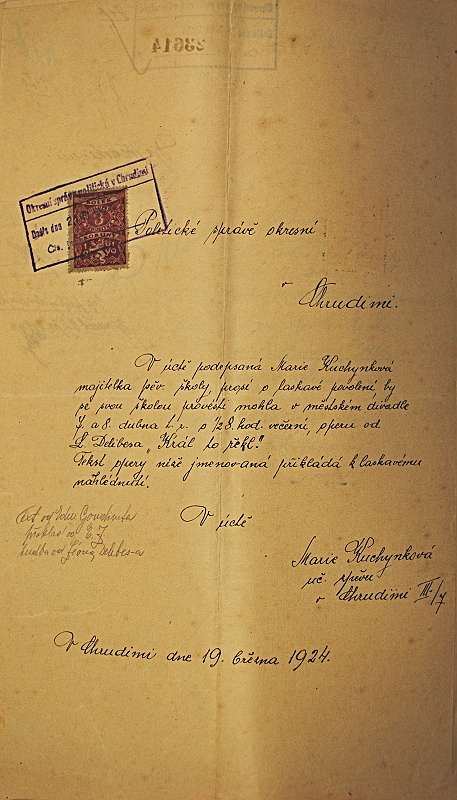 23614
Okresní správa politická v Chrudimi
Došlo dne
Čís.
3
Politické správě okresní
v
Chrudimi.
V úctě podepsaná Marie Kuchynková
majitelka pěv. školy prosí o laskavé povolení by
se svou školou provésti mohla v městském divadle
7. a 8. dubna t. r. o ½8. hod. večerní, operu od
L. Delibesa „Král to řekl."
Tekst opery níže jmenovaná přikládá k laskavému
nahlédnutí.
V úctě
Text od Edm. Gondineta
překlad od E. Z
hudba od Leona Delibes-a
Marie Kuchynková
uč. zpěvu
v Chrudimi III/7
V Chrudimi dne 19. března 1924.